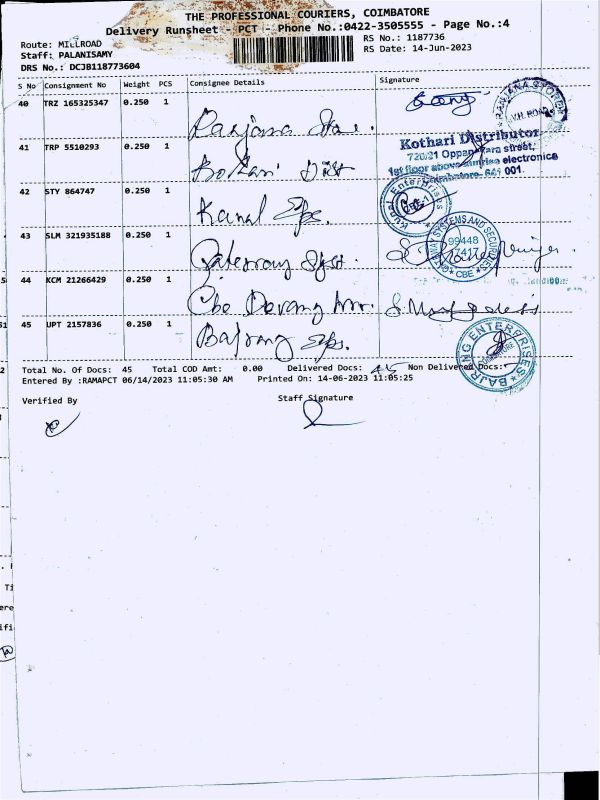 THE PROFESSIONAL COURIERS, COIMBATORE
Delivery Runsheet - PCT - Phone No.:0422-3505555 - Page No.:4
Route: MILLROAD
RS No.: 1187736
Staff: PALANISAMY
RS Date: 14-Jun-2023
DRS No.: DCJB118773604
S No Consignment No Weight PCS Consignee Details Signature
40 TRZ 165325347 0.250 1 Ranjana Store.
RANJANA STORES
V.H. ROAD
41 TRP 5510293 0.250 1 Kothari Dist
Kothari Distributor
720/21 Oppankara street,
1st floor above sunrise electronics
Coimbatore- 641 001.
42 STY 864747 0.250 1 Kamal Eps.
Enterprises
CBE-1
43 SLM 321935188 0.250 1 Gateway Syst.
GATEWAY SYSTEMS AND SECURITIES
99448
CBE
44 KCM 21266429 0.250 1 Cbe Devang
45 UPT 2157836 0.250 1 Bajrang Eps.
BAJRANG ENTERPRISES
COIMBATORE
Total No. Of Docs: 45 Total COD Amt: 0.00 Delivered Docs: 45 Non Delivered Docs:
Entered By :RAMAPCT 06/14/2023 11:05:30 AM Printed On: 14-06-2023 11:05:25
Verified By
Staff Signature